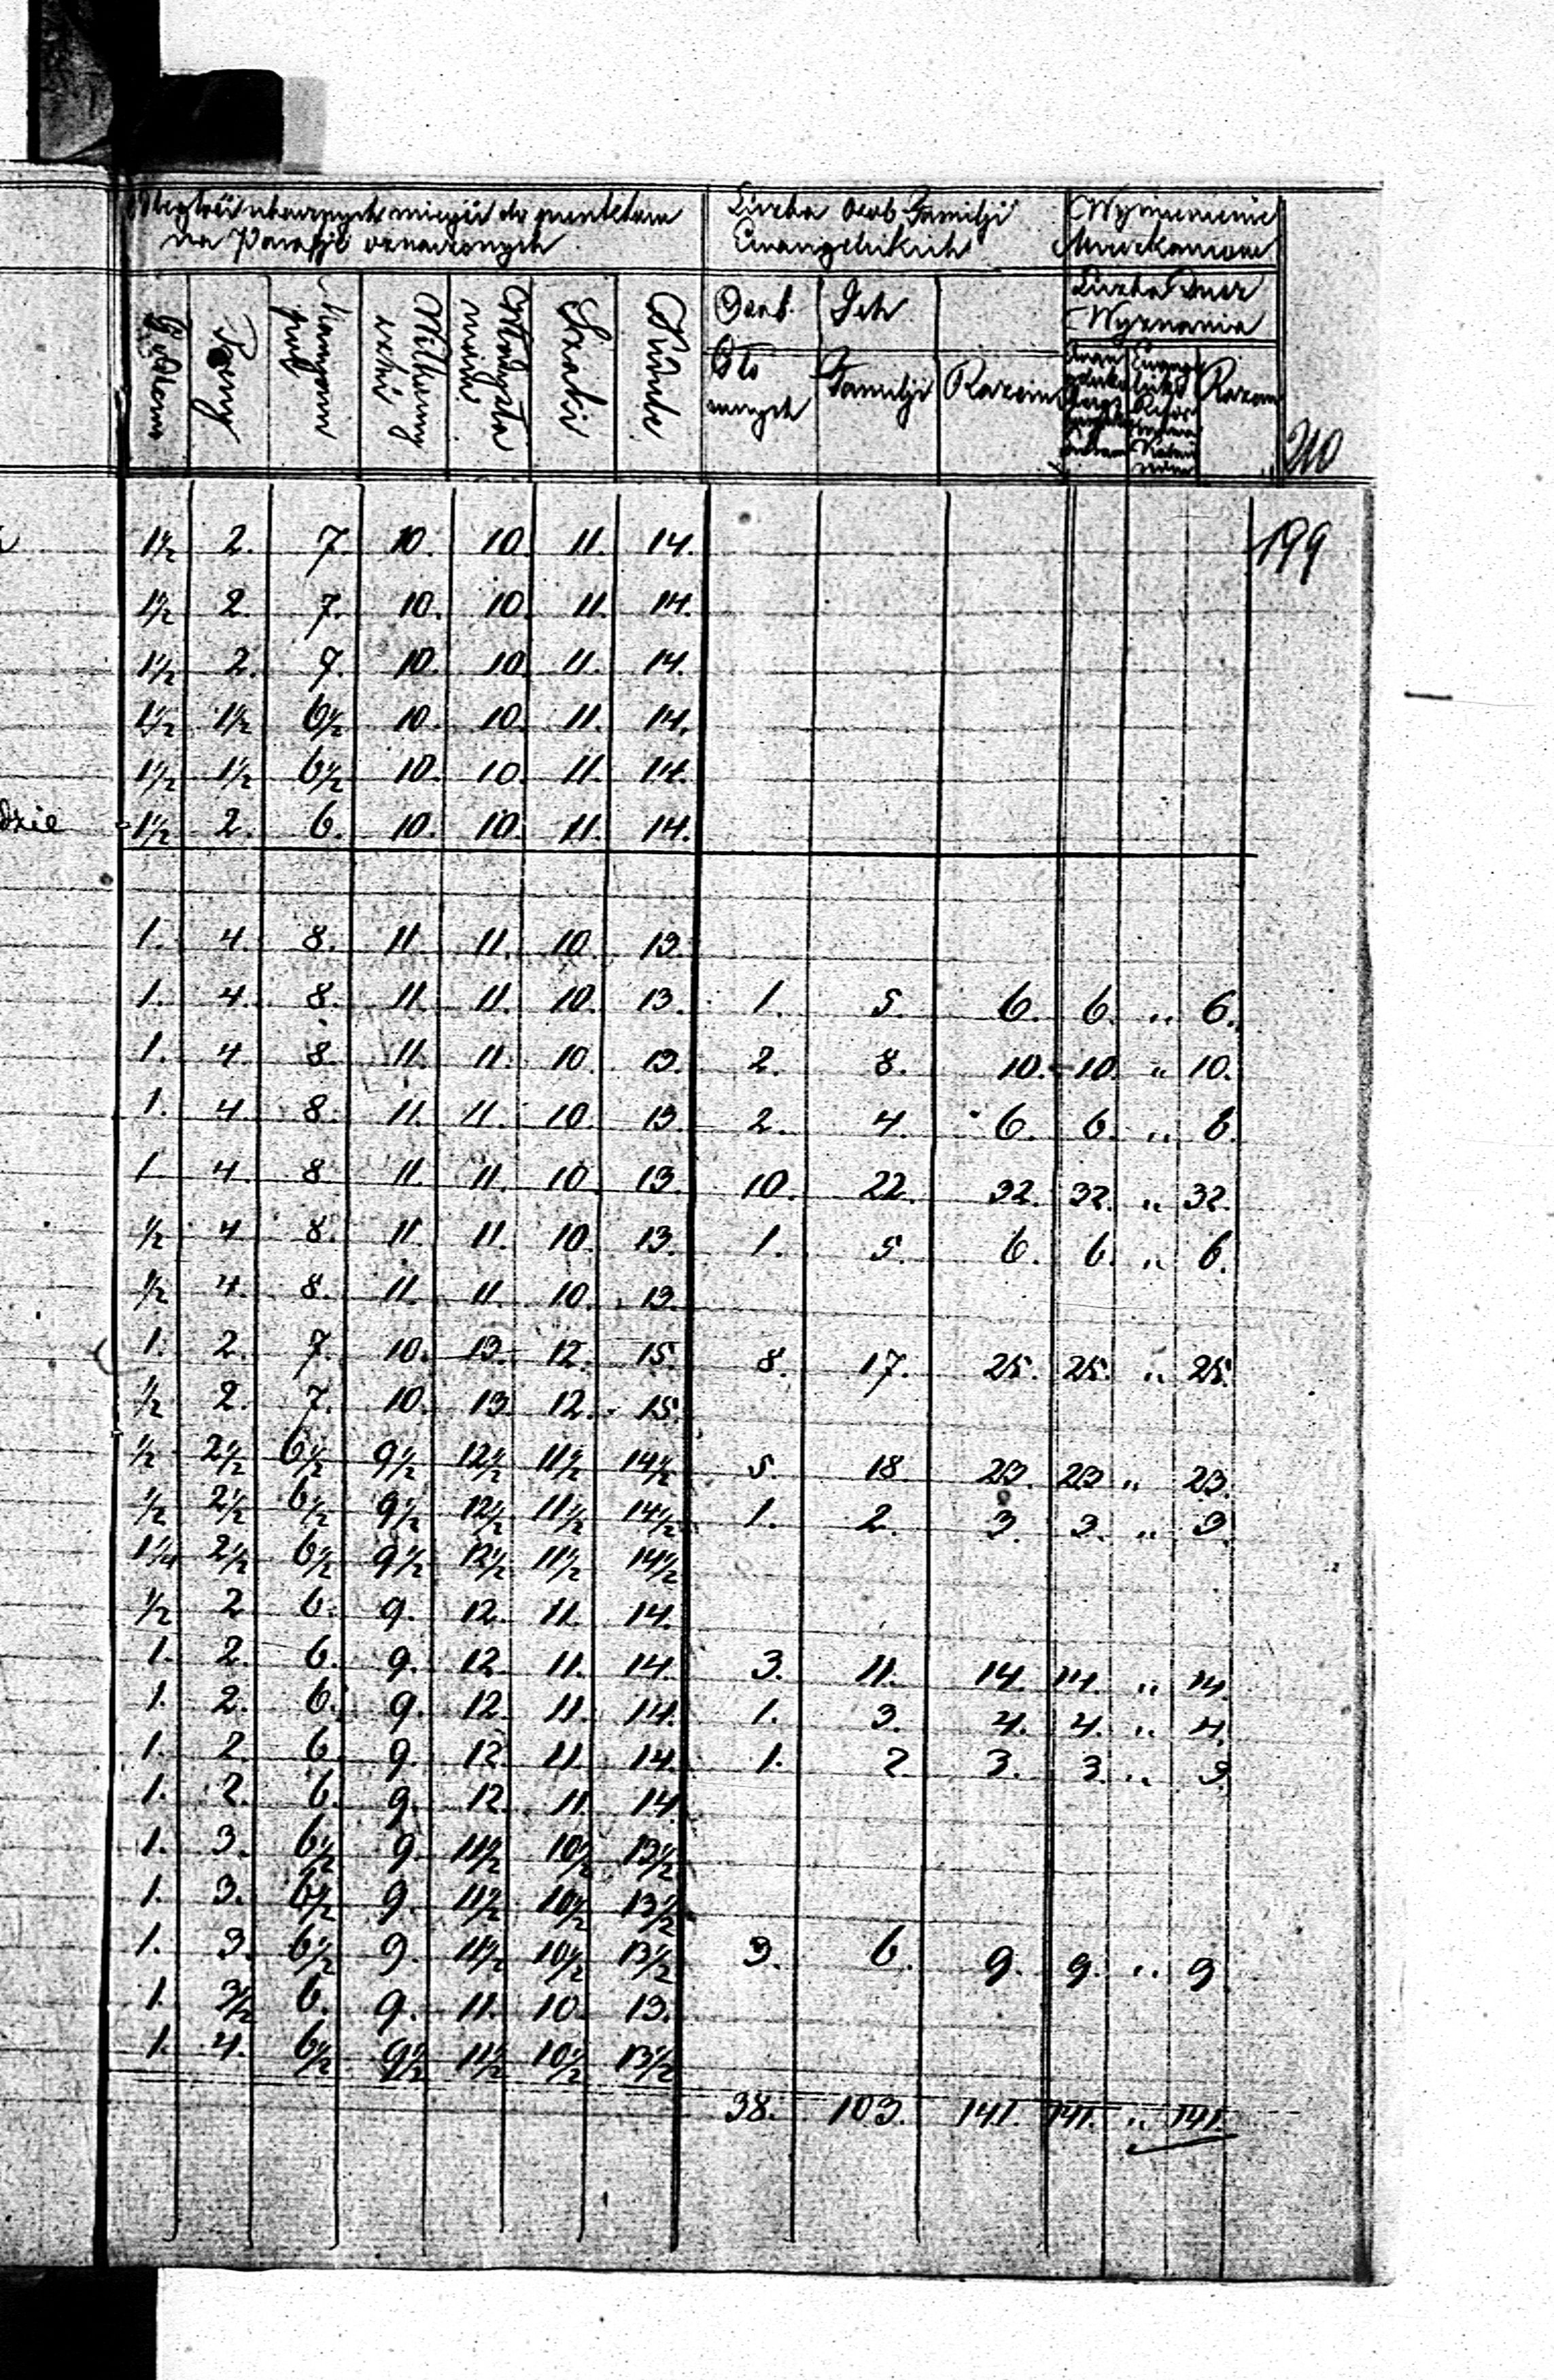 na Parafji oznaczonych
Liczba osób Familji
Ewangelickich
Liczba Dusz
Wyznania
Osób Ich
Familji Razem Razem
210
199
1½ 2. 7. 10. 10. 11. 14.
1½ 2. 7. 10. 10. 11. 14.
1½ 2. 7. 10. 10. 11. 14.
1½ 1½ 6½ 10. 10. 11. 14.
1½ 1½ 6½ 10. 10. 11. 14.
dzie 1½ 2. 6. 10. 10. 11. 14.
1. 4. 8. 11. 11. 10. 13.
1. 4. 8. 11. 11. 10. 13. 1. 5. 6. 6. „ 6.
1. 4. 8. 11. 11. 10. 13. 2. 8. 10. 10. „ 10.
1. 4. 8. 11. 11. 10. 13. 2. 4. 6. 6. „ 6.
1. 4. 8 11. 11. 10. 13. 10. 22. 32. 32. „ 32.
½ 4 8. 11. 11. 10. 13. 1. 5. 6. 6. „ 6.
½ 4. 8. 11. 11. 10. 13.
1. 2. 7. 10. 13. 12. 15. 8. 17. 25. 25. „ 25.
½ 2. 7. 10. 13 12. 15.
½ 2½ 6½ 9½ 12½ 11½ 14½ 5. 18 23. 23 „ 23.
½ 2½ 6½ 9½ 12½ 11½ 14½ 1. 2. 3. 3. „ 3.
1¼ 2½ 6½ 9½ 12½ 11½ 14½
½ 2 6. 9. 12. 11. 14.
1. 2. 6. 9. 12. 11. 14. 3. 11. 14. 14. „ 14.
1. 2. 6. 9. 12. 11. 14. 1. 3. 4. 4. „ 4.
1. 2. 6. 9. 12. 11. 14. 1. 2 3. 3. „ 3.
1. 2. 6. 9. 12. 11. 14
1. 3. 6½ 9. 11½ 10½ 13½
1. 3. 6½ 9. 11½ 10½ 13½
1. 3. 6½ 9. 11½ 10½ 13½ 3. 6. 9. 9. „ 9
1. 3½ 6. 9. 11. 10. 13.
1. 4. 6½ 9½ 11½ 10½ 13½
38. 103. 141. 141. „ 141.